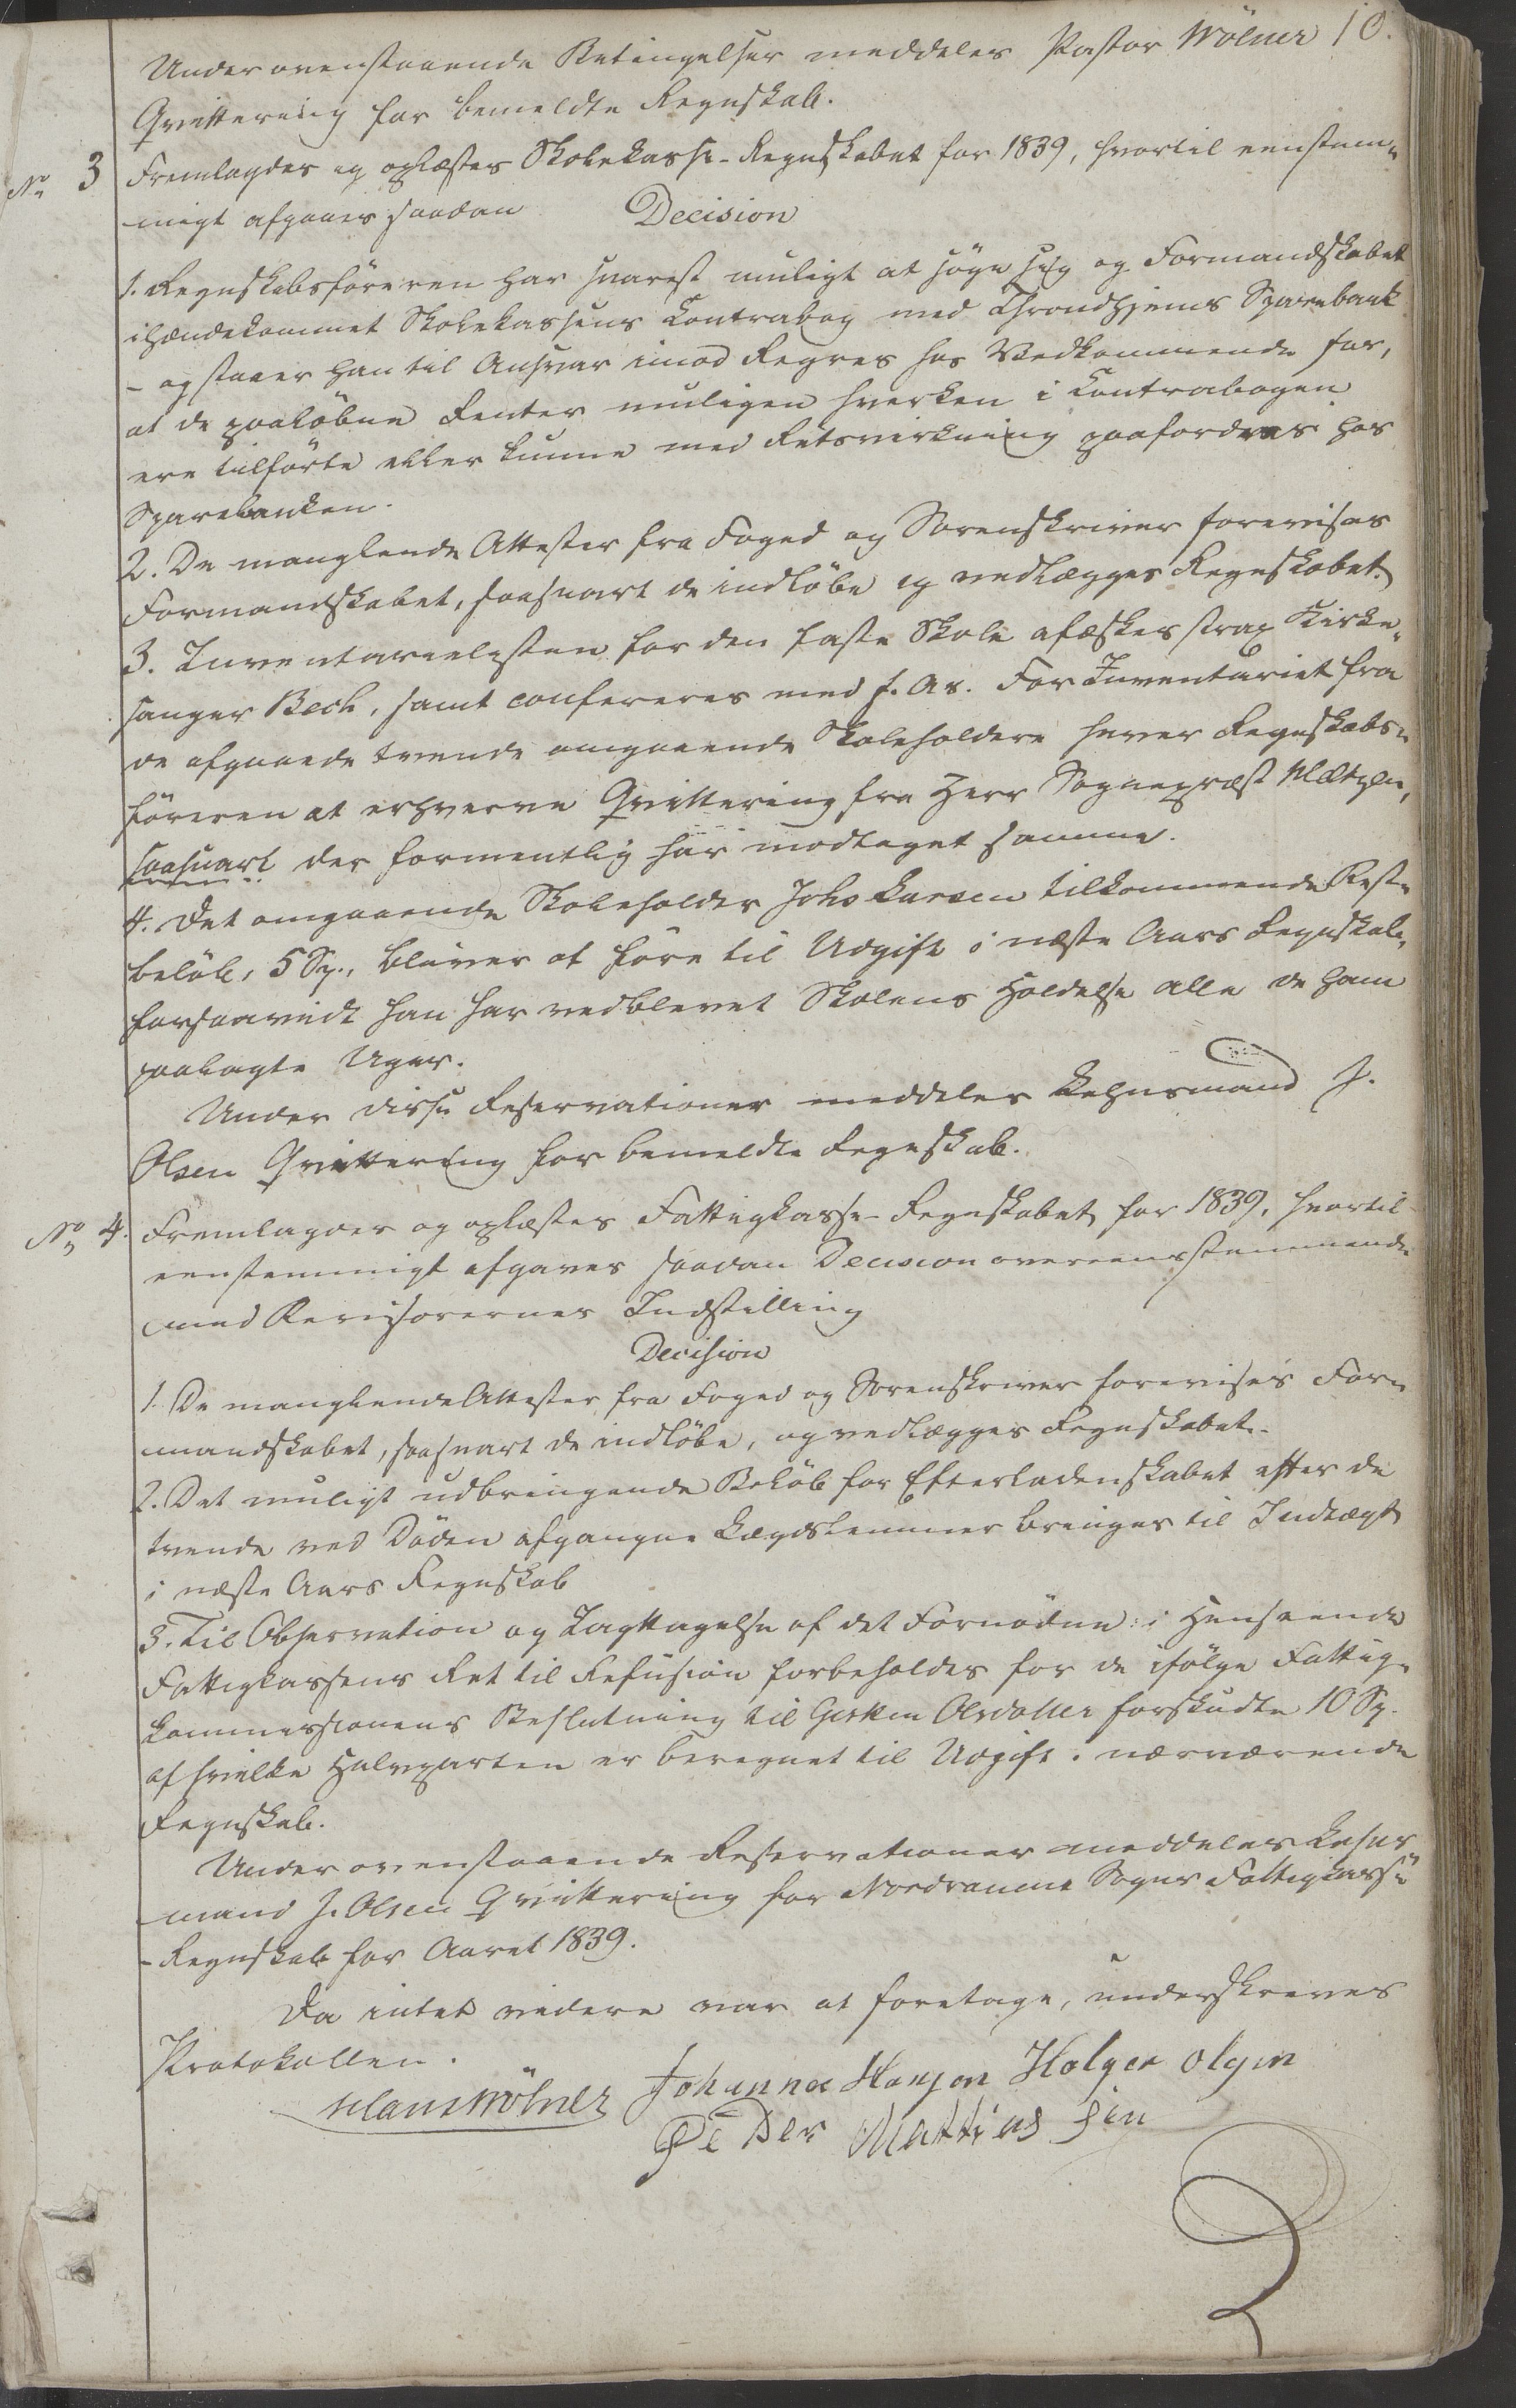 Under ovenstaaende Betingelser meddeles Pastor Mölner 10.
Qvittering for bemeldte Regnskab.
No 3 Fremlagdes og oplæstes Skolekasse-Regnskabet for 1839, hvortil eenstem-
migt afgaves saadan Decision
1. Regnskabsföreren har snarest muligt at söge sig og Formandskabet
ihændekommet Skolekassens Contrabog med Throndhjems Sparebank
- og staaer han til Ansvar imod Regres hos Vedkommende for,
at de paaløbne Renter muligen hverken i Contrabogen
ere tilförte eller kunne med Retsvirkning paafordres hos
Sparebanken.
2. De manglende Attester fra Foged og Sorenskriver forevises
Formandskabet, saasnart de indlöbe og vedlægges Regnskabet.
3. Inventarielisten for den faste Skole afæskes strax Kirke-
sanger Bech, samt confereres med f. Ar. For Inventariet fra
de afgaaede tvende omgaaende Skoleholdere haver Regnskabs-
föreren at erhverve Qvittering fra Herr Sognepræst
saasnart der formentlig har modtaget samme.
4. Det omgaaende Skoleholder Johs Larsen tilkommende Rest-
belöb, 5 Sp., bliver at före til Udgift i næste Aars Regnskab,
forsaavidt han har vedblevet Skolens Holdelse alle de ham
paalagte Uger.
Under disse Reservationer meddeles Lehnsmand J.
Olsen Qvittering for bemeldte Regnskab.
No 4. Fremlagdes og oplæstes Fattigkasse-Regnskabet for 1839, hvortil
eenstemmigt afgaves saadan Decision overeensstemmende
med Revisorernes Indstilling
Decision
1. De manglende Attester fra Foged og Sorenskriver forevises For-
mandskabet, saasnart de indlöbe, og vedlægges Regnskabet.
2. Det muligt udbringende Belöb for Efterladenskabet efter de
tvende ved Döden afgangne Lægdslemmer bringes til Indtægt
i næste Aars Regnskab
3. Til Observation og Iagttagelse af det Fornödne i Henseende
Fattigkassens Ret til Refusion forbeholdes for de ifölge Fattig-
kommissionens Beslutning til Olsdatter forskudte 10 Sp.
af hvilke Halvparten er beregnet til Udgift i nærværende
Regnskab.
Under ovenstaaende Reservationer meddeles Lehns-
mand J. Olsen Qvittering for Sogns Fattigkasse
- Regnskab for Aaret 1839.
Da intet videre var at foretage, underskreves
Protokollen.
Hans Mölner Johannes Hansen Holger Olsen
Peder Mattias sen